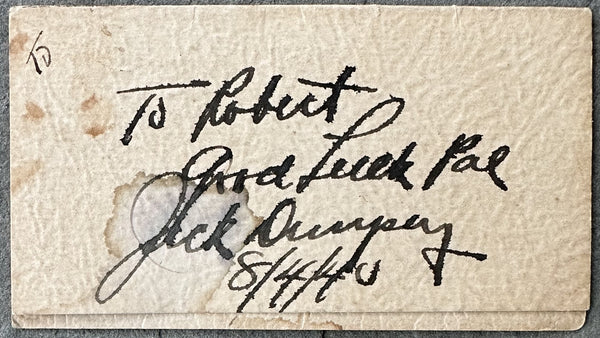 To
To Robert
Good Luck Pal
Jack Dempsey
8/4/40